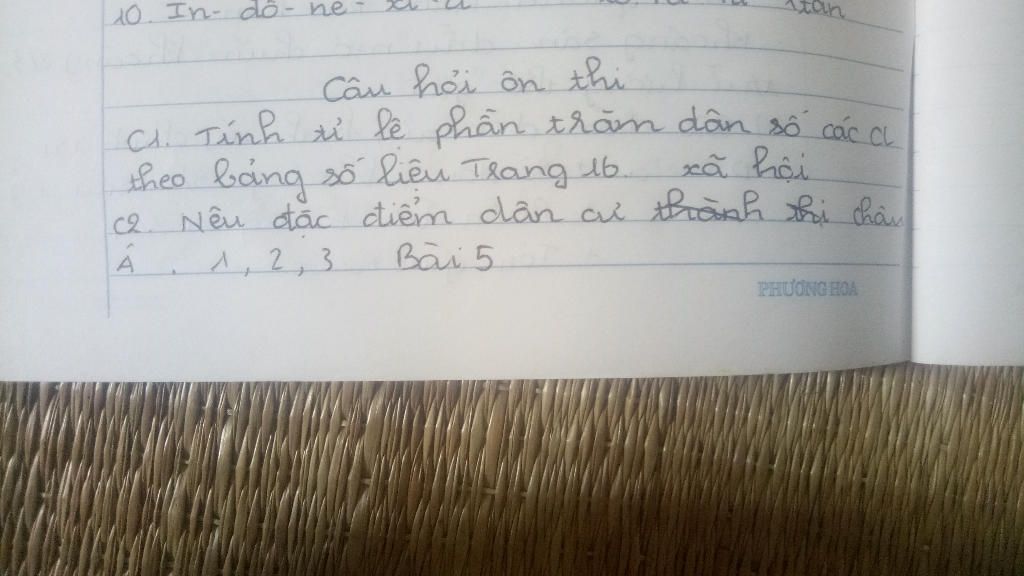 10. In - đô - nê - xi - a
Câu hỏi ôn thi
C1. Tính tỉ lệ phần trăm dân số các CL
theo bảng số liệu Trang 16. xã hội
C2. Nêu đặc điểm dân cư thành thị châu
Á . 1, 2, 3 Bài 5
PHƯƠNG HOA